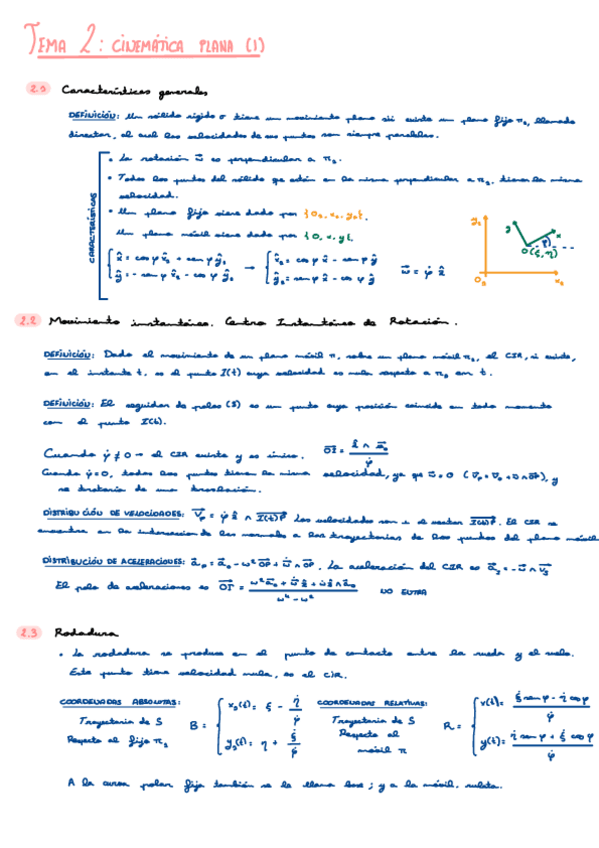 TEMA 2: CINEMÁTICA PLANA (I)
2.1 Características generales
DEFINICIÓN: Un sólido rígido σ tiene un movimiento plano sii existe un plano fijo π₁, llamado
director, al cual las velocidades de sus puntos son siempre paralelas.
CARACTERÍSTICAS
• La rotación ω⃗ es perpendicular a π₁.
• Todos los puntos del sólido que están en la misma perpendicular a π₁, tienen la misma
velocidad.
• Un plano fijo viene dado por {O₁, x₁, y₁}.
Un plano móvil viene dado por {O, x, y}.
x̂ = cos φ x̂₁ + sen φ ŷ₁
ŷ = - sen φ x̂₁ - cos φ ŷ₁
→
x̂₁ = cos φ x̂ - sen φ ŷ
ŷ₁ = sen φ x̂ - cos φ ŷ
ω⃗ = φ̇ ẑ
y₁
O₁
x₁
y
x
φ
O(ξ, η)
2.2 Movimiento instantáneo. Centro Instantáneo de Rotación.
DEFINICIÓN: Dado el movimiento de un plano móvil π, sobre un plano móvil π₁, el CIR, si existe,
en el instante t, es el punto I(t) cuya velocidad es nula respecto a π₁ en t.
DEFINICIÓN: El seguidor de polos (S) es un punto cuya posición coincide en todo momento
con el punto I(t).
Cuando φ̇ ≠ 0 → el CIR existe y es único. OI = ẑ ∧ v⃗₀ / φ̇
Cuando φ̇ = 0, todos los puntos tienen la misma velocidad, ya que ω⃗ = 0 (v⃗p = v⃗₀ + ω ∧ OP), y
se trataría de una traslación.
DISTRIBUCIÓN DE VELOCIDADES: v⃗p = φ̇ ẑ ∧ I(t)P Las velocidades son ⊥ al vector I(t)P. El CIR se
encuentra en la intersección de las normales a las trayectorias de los puntos del plano móvil
DISTRIBUCIÓN DE ACELERACIONES: a⃗p = a⃗₀ - ω² OP + ω̇ ∧ OP. La aceleración del CIR es a⃗ᵢ = - ω⃗ ∧ v⃗ₛ
El polo de aceleraciones es NO ENTRA
2.3 Rodadura
• La rodadura se produce en el punto de contacto entre la rueda y el suelo.
Este punto tiene velocidad nula, es el CIR.
COORDENADAS ABSOLUTAS:
Trayectoria de S
Respecto al fijo π₁
B =
x₁(t) = ξ - η̇ / φ̇
y₁(t) = η + ξ̇ / φ̇
COORDENADAS RELATIVAS:
Trayectoria de S
Respecto al
móvil π
R =
x(t) = ξ̇ sen φ - η̇ cos φ / φ̇
y(t) = η̇ sen φ + ξ̇ cos φ / φ̇
A la curva polar fija también se la llama base; y a la móvil, ruleta.